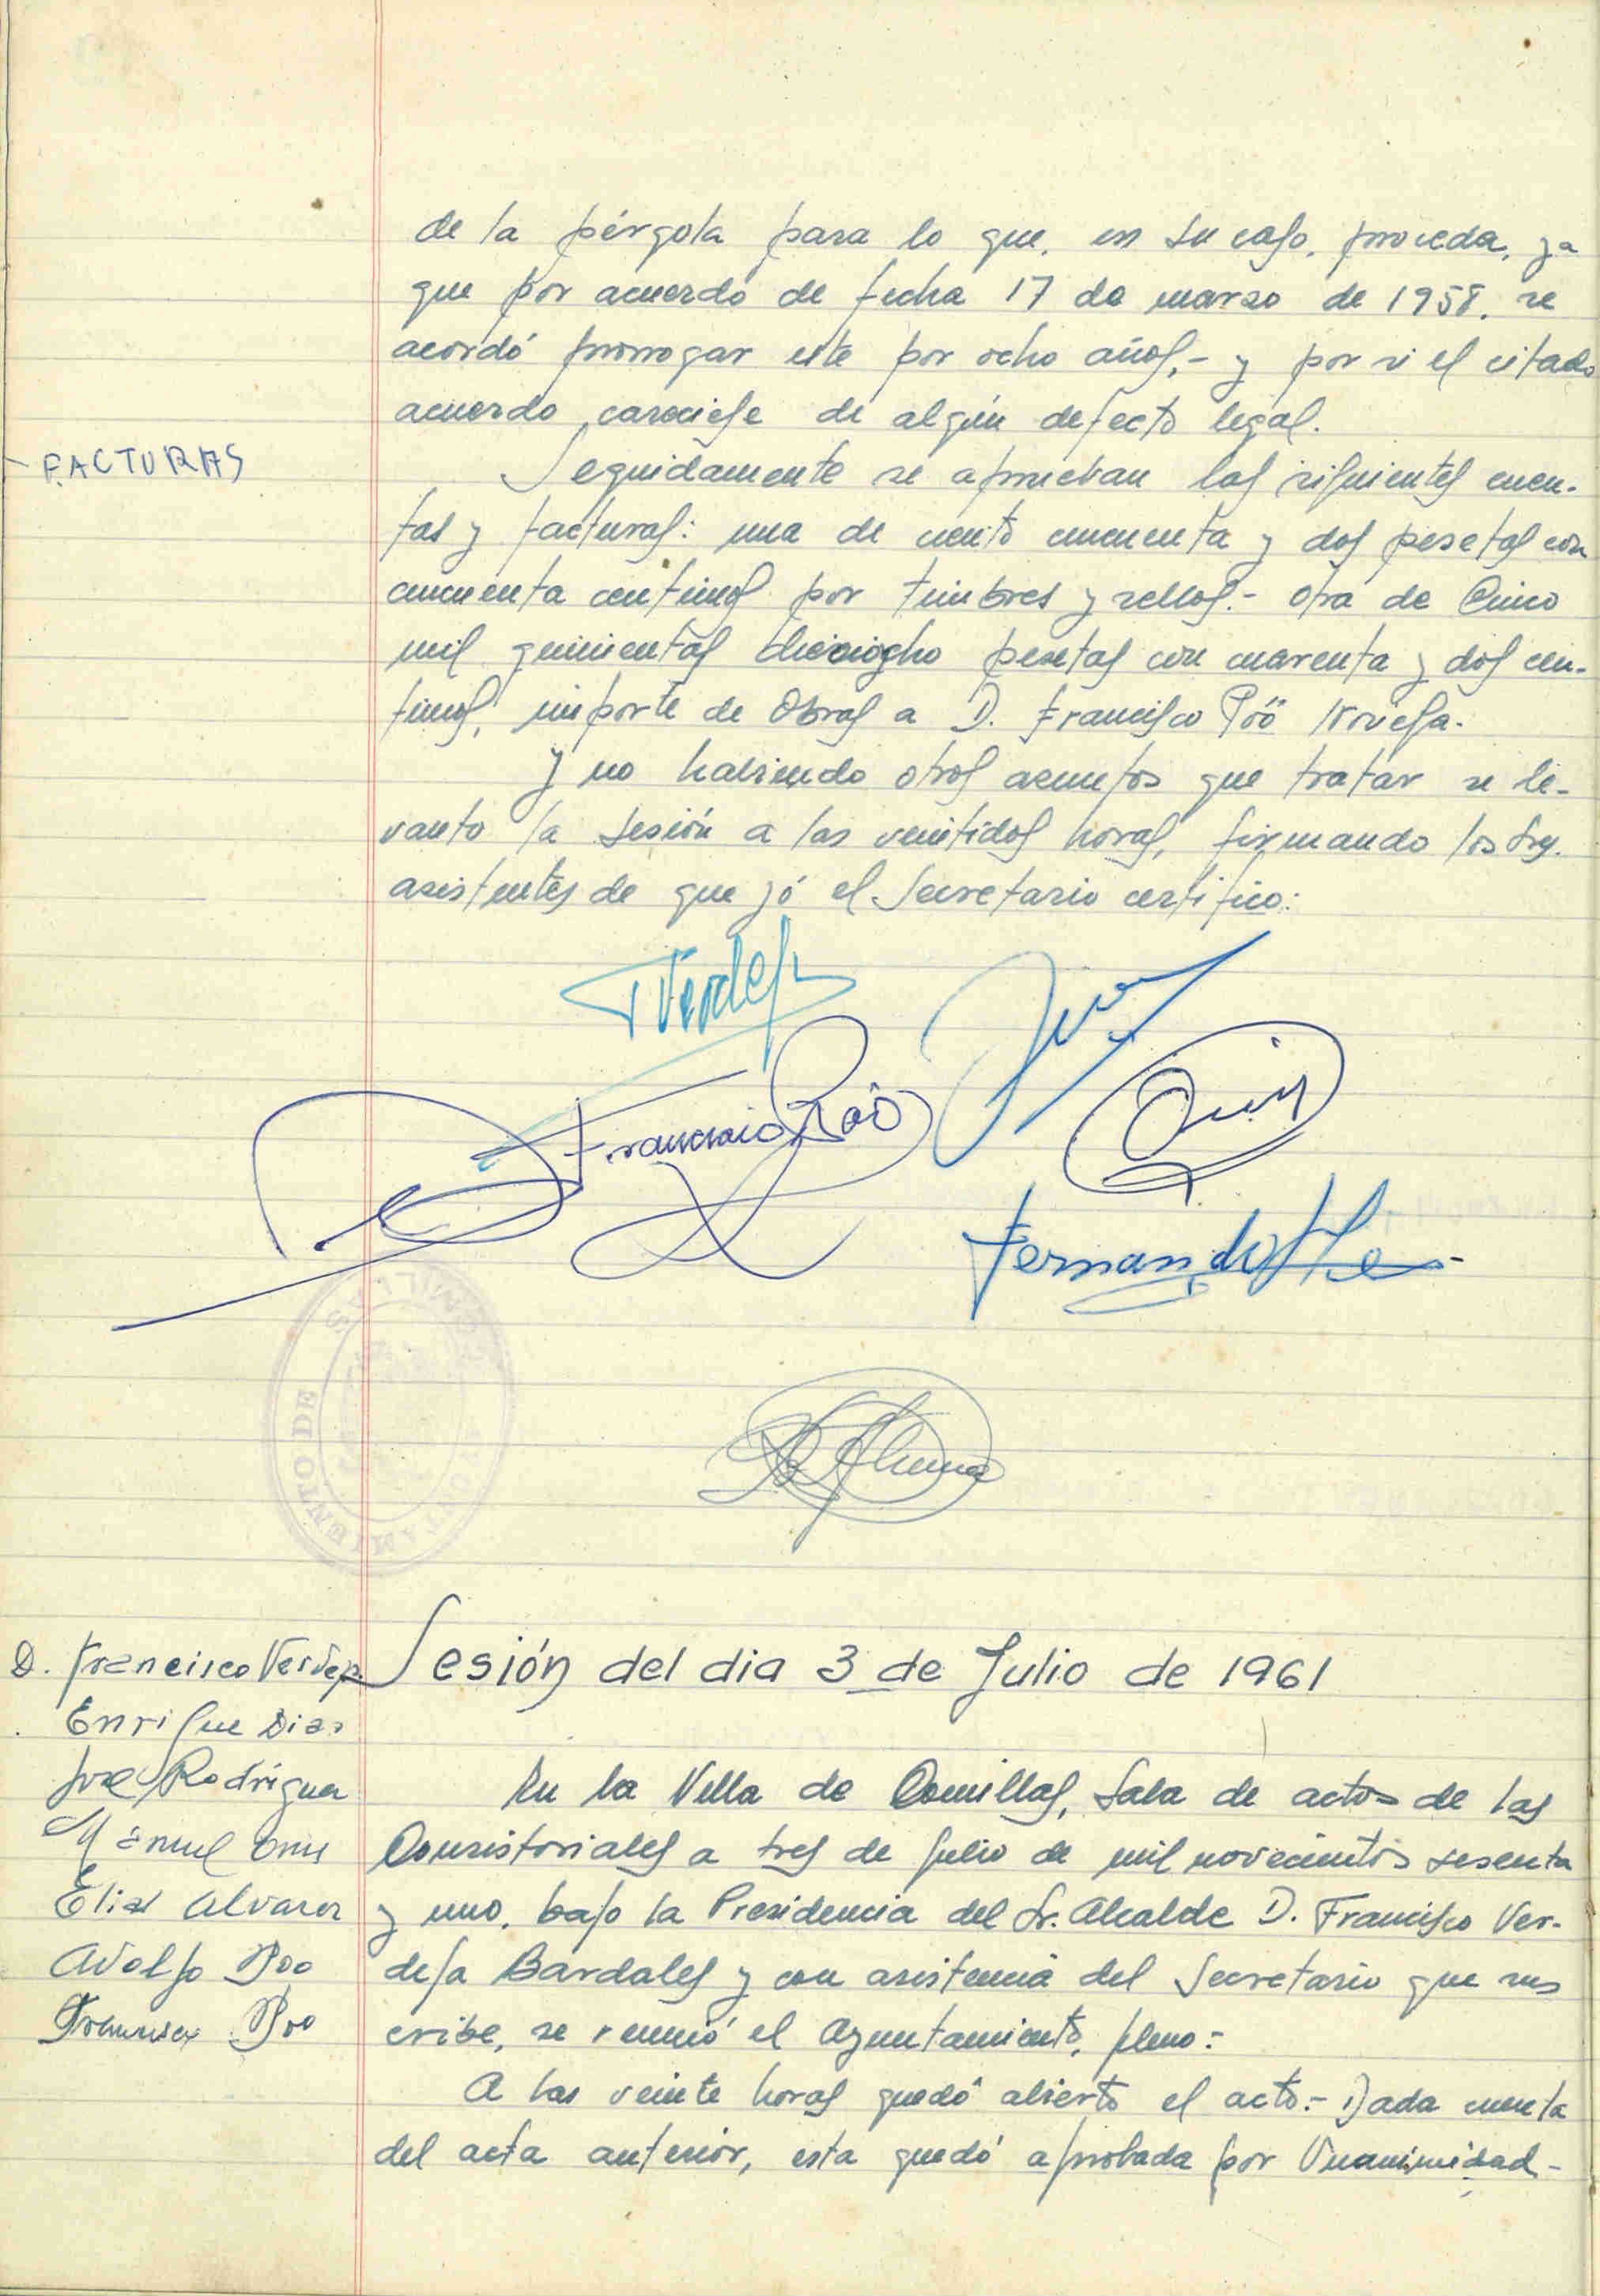 de la pérgola para lo que, en su caso, proceda, ya
que por acuerdo de fecha 17 de marzo de 1958, se
acordó prorrogar este por ocho años,- y por si el citado
acuerdo careciese de algún defecto legal.
FACTURAS
Seguidamente se aprueban las siguientes cuen-
tas y facturas: una de ciento cincuenta y dos pesetas con
cincuenta centimos por timbres y sellos.- otra de Cinco
mil quinientas dieciocho pesetas con cuarenta y dos cen-
timos, importe de Obras a D. Francisco Póo Novesa.
Y no habiendo otros asuntos que tratar se le-
vanto la sesión a las veintidos horas, firmando los Srs.
asistentes de que yó el Secretario certifico:
FVerdeja
Francisco Poo
Ruiz
Fernando
AYUNTAMIENTO DE COMILLAS
Sesión del dia 3 de Julio de 1961
D. Francisco Verdeja
Enrique Diaz
Jose Rodriguez
Manuel
Elias Alvarez
Adolfo Poo
Francisco Poo
En la Villa de Comillas, Sala de actos de las
Consistoriales a tres de Julio de mil novecientos sesenta
y uno, bajo la Presidencia del Sr. Alcalde D. Francisco Ver-
deja Bardales y con asistencia del Secretario que sus
cribe, se reunió el Ayuntamiento, pleno:
A las veinte horas quedó abierto el acto.- Dada cuenta
del acta anterior, esta quedó aprobada por Unanimidad-